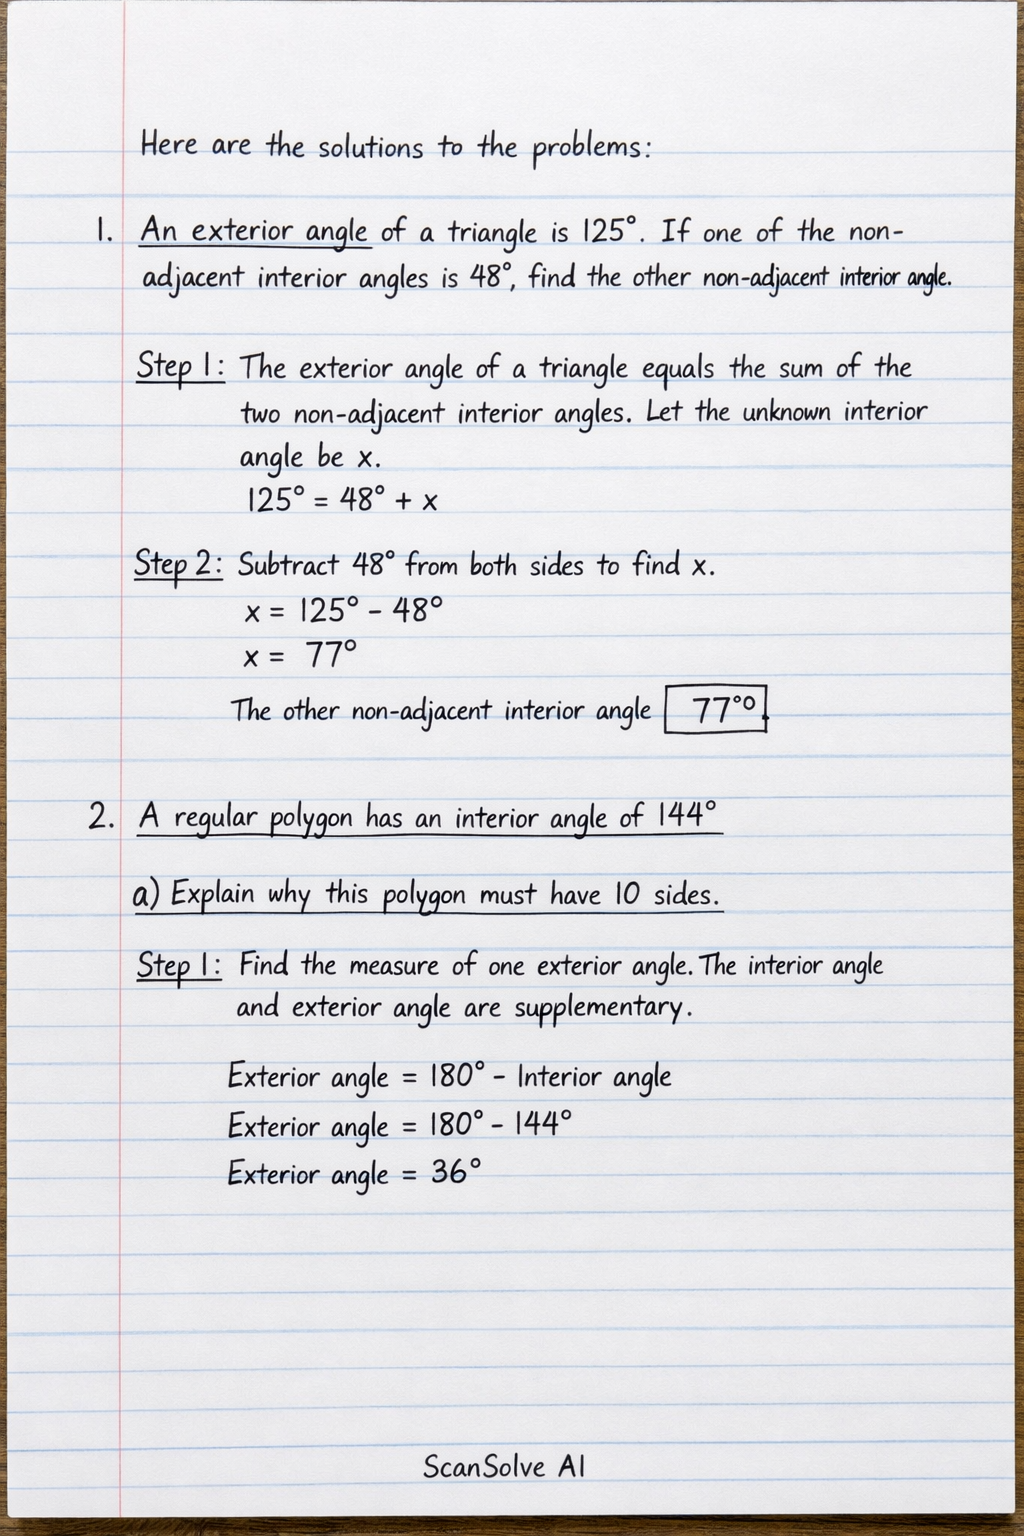 Here are the solutions to the problems:
1. An exterior angle of a triangle is 125°. If one of the non-
adjacent interior angles is 48°, find the other non-adjacent interior angle.
Step 1: The exterior angle of a triangle equals the sum of the
two non-adjacent interior angles. Let the unknown interior
angle be x.
125° = 48° + x
Step 2: Subtract 48° from both sides to find x.
x = 125° - 48°
x = 77°
The other non-adjacent interior angle 77°°.
2. A regular polygon has an interior angle of 144°
a) Explain why this polygon must have 10 sides.
Step 1: Find the measure of one exterior angle. The interior angle
and exterior angle are supplementary.
Exterior angle = 180° - Interior angle
Exterior angle = 180° - 144°
Exterior angle = 36°
ScanSolve AI